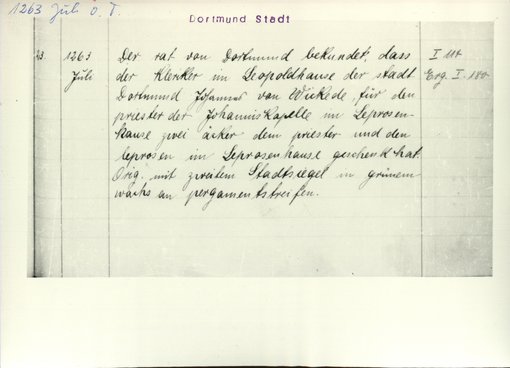 1263 Juli o. T.
Dortmund Stadt
23. 1263 Der rat von Dortmund bekundet, dass I 114
Juli der Kleriker im Leopoldhause der stadt Erg. I. 180
Dortmund Johannes von Wickede, für den
priester der Johanniskapelle im Leprosen-
hause zwei äcker dem priester und den
leprosen im Leprosenhause geschenkt hat.
Orig. mit zweitem Stadtsiegel in grünem
wachs an pergamentstreifen.